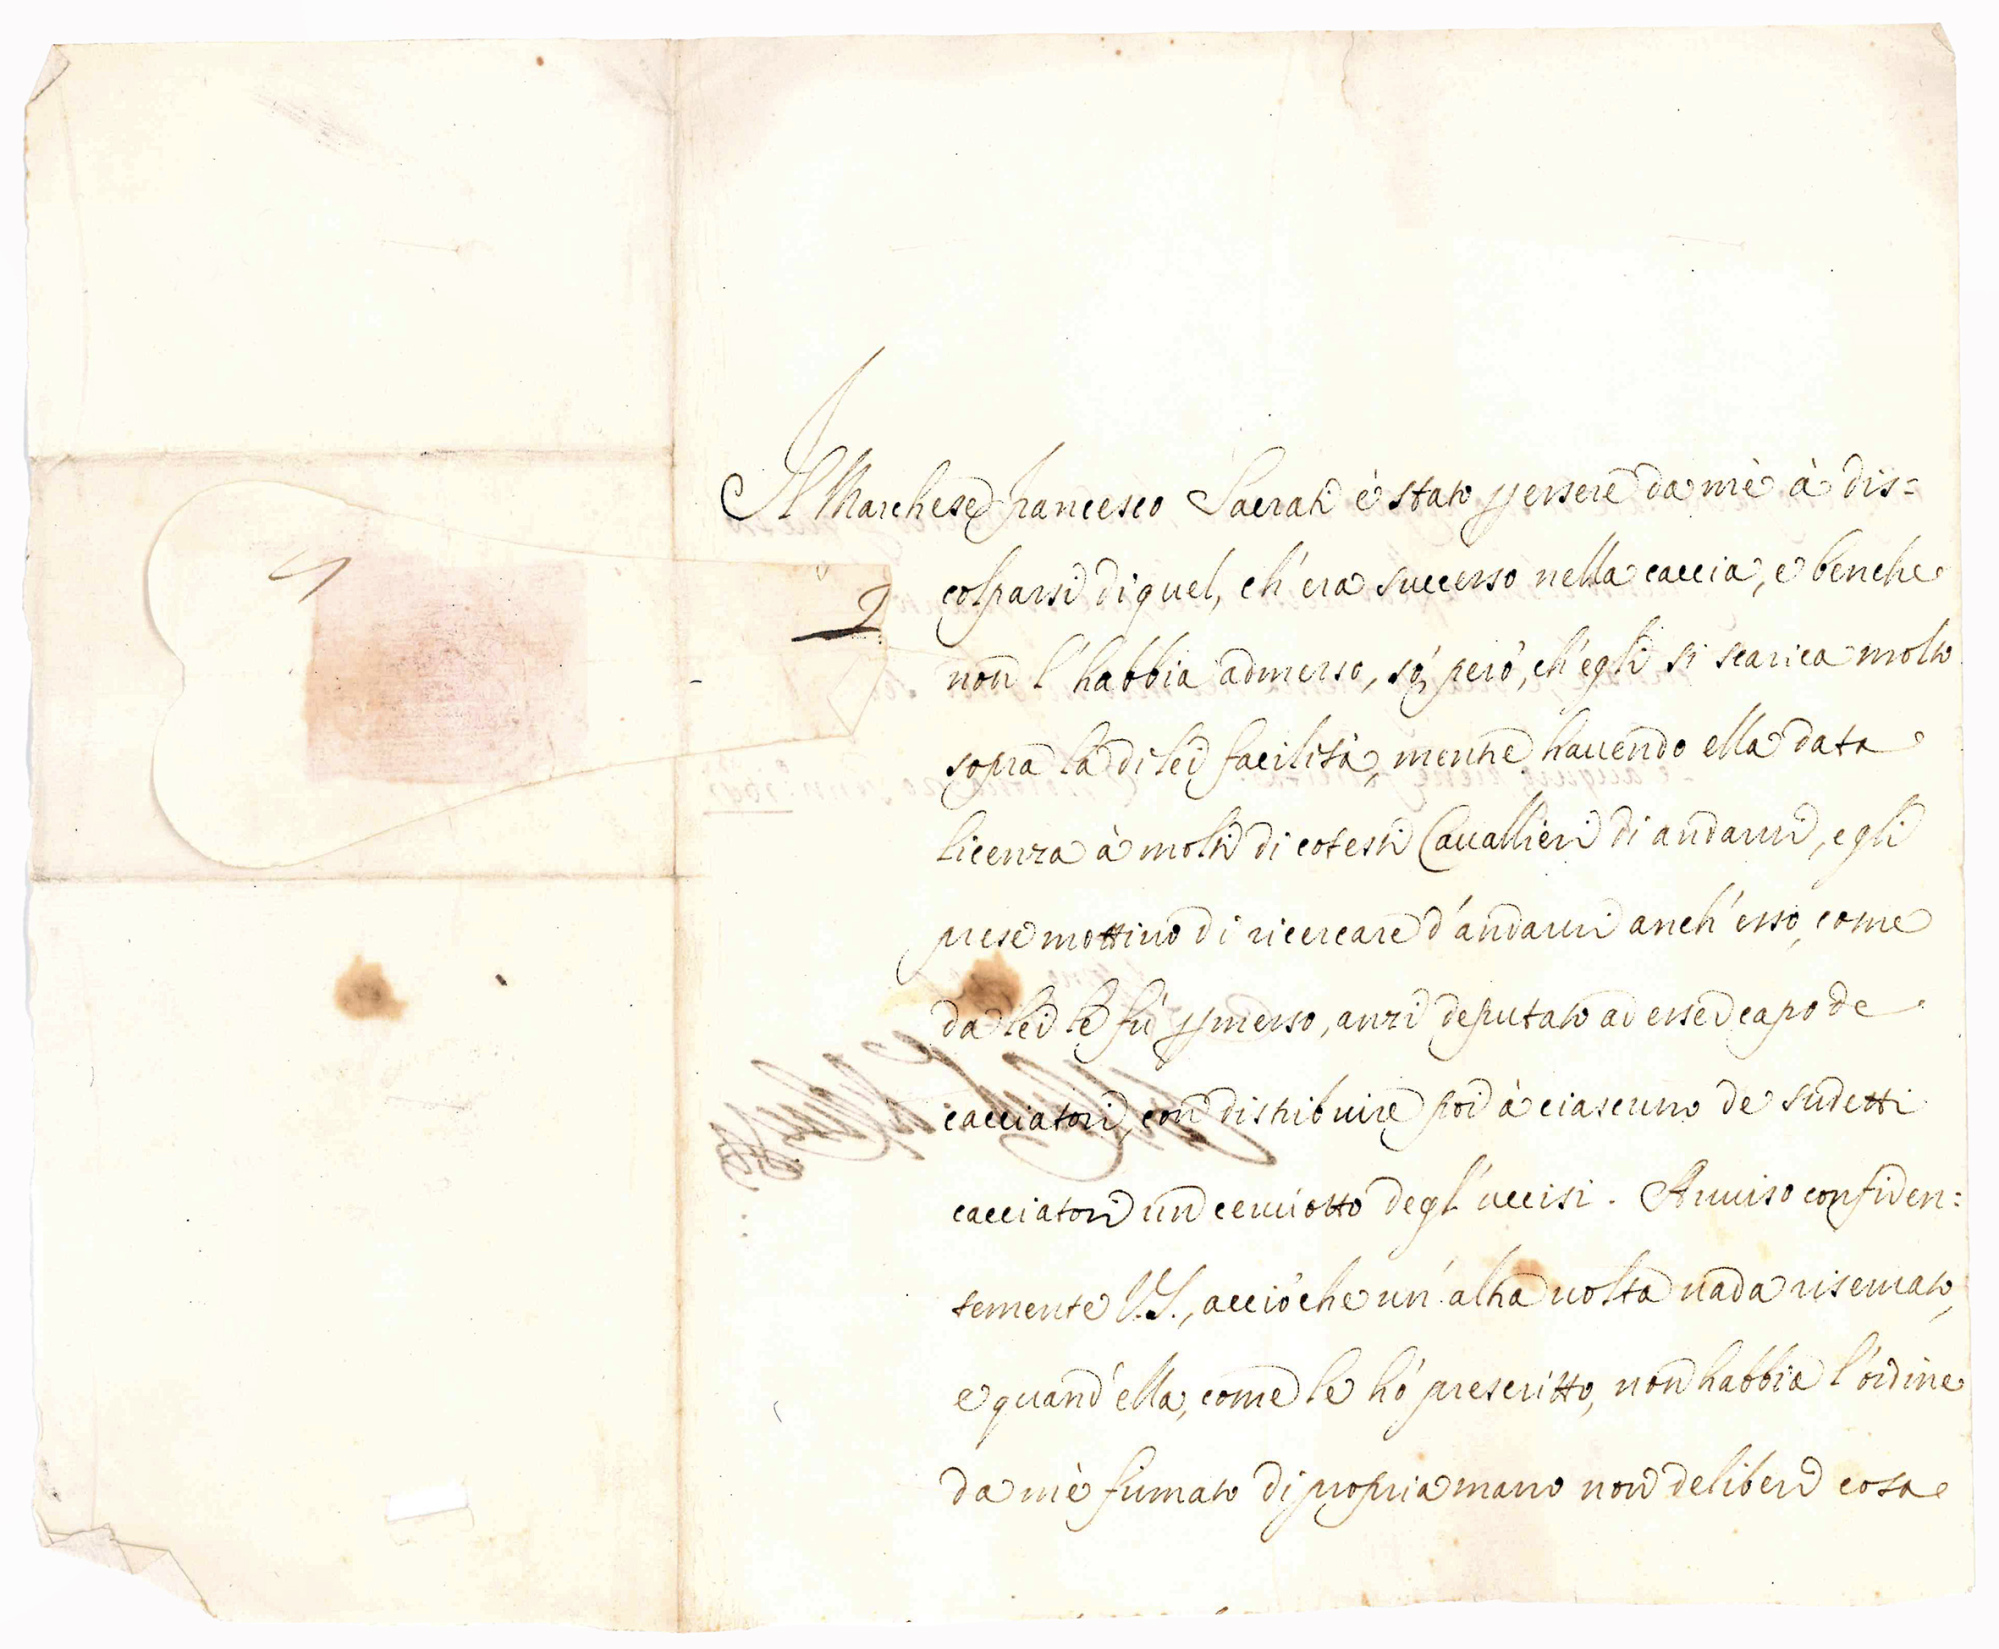 Il Marchese Francesco Sacrati è stato per essere da mè à dis=
2
colparsi di quel, ch'era successo nella caccia, e benche
non l'habbia admesso, sò però, ch'egli si scarica molto
sopra la di lei facilità, mentre hauendo ella data
licenza à molti di cotesti Cauallieri di andarui, egli
prese mottiuo di ricercare d'andarui anch'esso, come
da lei le fù permesso, anzi deputato ad esser capo de
cacciatori, con distribuire poi à ciascuno de sudetti
cacciatori un ceruiotto degl'uccisi. Auuiso confiden=
temente V.S., acciò che un'altra uolta uada riseruato,
e quand'ella, come le hò prescritto, non habbia l'ordine
da mè firmato di propria mano non deliberi cosa